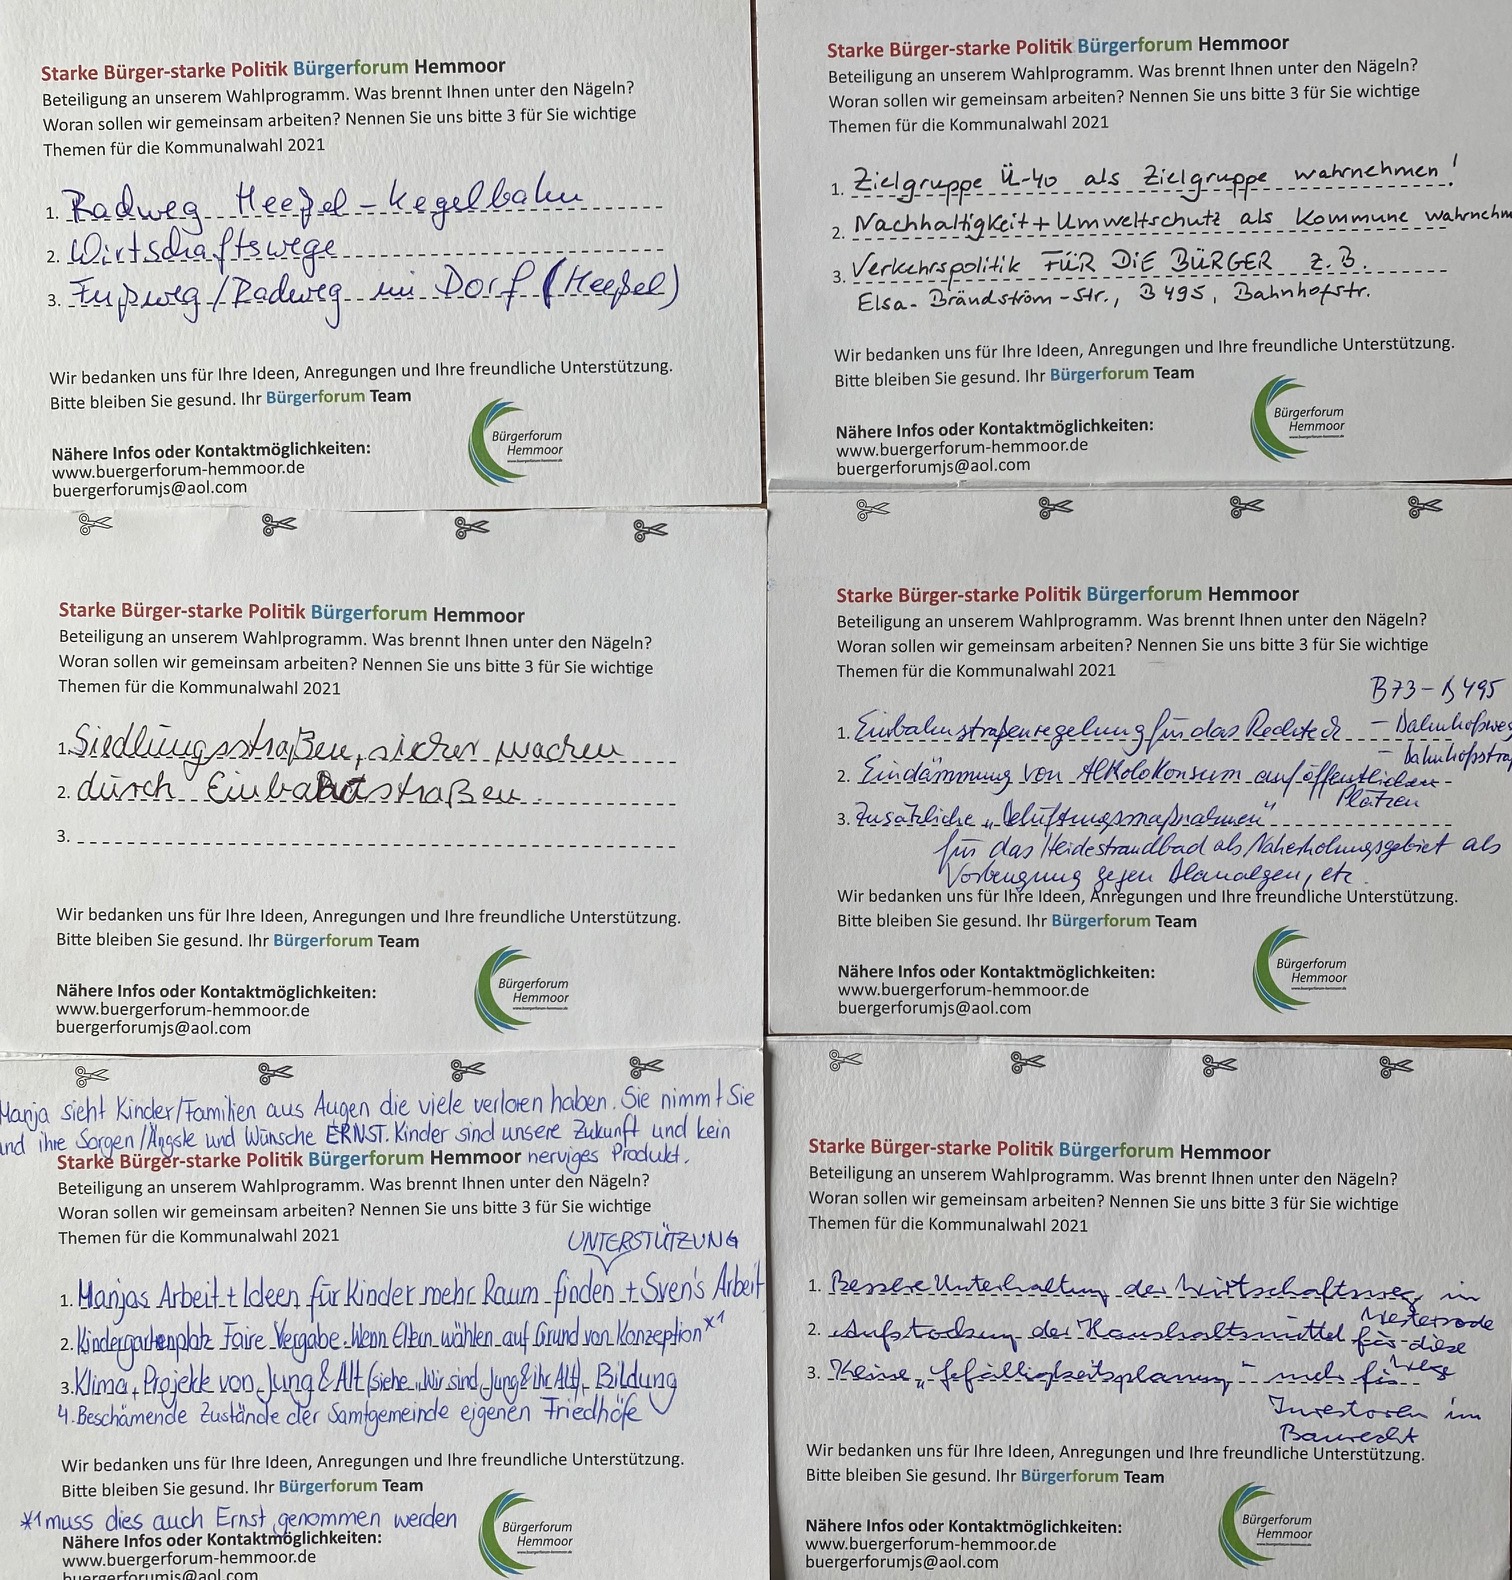 Starke Bürger-starke Politik Bürgerforum Hemmoor
Beteiligung an unserem Wahlprogramm. Was brennt Ihnen unter den Nägeln?
Woran sollen wir gemeinsam arbeiten? Nennen Sie uns bitte 3 für Sie wichtige
Themen für die Kommunalwahl 2021
1. Radweg Heeßel - Kegelbahn
2. Wirtschaftswege
3. Fußweg/Radweg im Dorf (Heeßel)
Wir bedanken uns für Ihre Ideen, Anregungen und Ihre freundliche Unterstützung.
Bitte bleiben Sie gesund. Ihr Bürgerforum Team
Nähere Infos oder Kontaktmöglichkeiten:
www.buergerforum-hemmoor.de
buergerforumjs@aol.com
Bürgerforum
Hemmoor
Starke Bürger-starke Politik Bürgerforum Hemmoor
Beteiligung an unserem Wahlprogramm. Was brennt Ihnen unter den Nägeln?
Woran sollen wir gemeinsam arbeiten? Nennen Sie uns bitte 3 für Sie wichtige
Themen für die Kommunalwahl 2021
1. Zielgruppe Ü-40 als Zielgruppe wahrnehmen!
2. Nachhaltigkeit + Umweltschutz als Kommune wahrnehm
3. Verkehrspolitik FÜR DIE BÜRGER z.B.
Elsa-Brändström-Str., B 495, Bahnhofstr.
Wir bedanken uns für Ihre Ideen, Anregungen und Ihre freundliche Unterstützung.
Bitte bleiben Sie gesund. Ihr Bürgerforum Team
Nähere Infos oder Kontaktmöglichkeiten:
www.buergerforum-hemmoor.de
buergerforumjs@aol.com
Bürgerforum
Hemmoor
Starke Bürger-starke Politik Bürgerforum Hemmoor
Beteiligung an unserem Wahlprogramm. Was brennt Ihnen unter den Nägeln?
Woran sollen wir gemeinsam arbeiten? Nennen Sie uns bitte 3 für Sie wichtige
Themen für die Kommunalwahl 2021
1. Siedlungsstraßen, sicher machen
2. durch Einbahnstraßen.
3.
Wir bedanken uns für Ihre Ideen, Anregungen und Ihre freundliche Unterstützung.
Bitte bleiben Sie gesund. Ihr Bürgerforum Team
Nähere Infos oder Kontaktmöglichkeiten:
www.buergerforum-hemmoor.de
buergerforumjs@aol.com
Bürgerforum
Hemmoor
Starke Bürger-starke Politik Bürgerforum Hemmoor
Beteiligung an unserem Wahlprogramm. Was brennt Ihnen unter den Nägeln?
Woran sollen wir gemeinsam arbeiten? Nennen Sie uns bitte 3 für Sie wichtige
Themen für die Kommunalwahl 2021
B73 - B495
1. Einbahnstraßenregelung für das Rechteck - Bahnhofsweg
- Bahnhofstraß
2. Eindämmung von Alkolokonsum auf öffentlichen
Plätzen
3. Zusätzliche „Belüftungsmaßnahmen"
für das Heidestrandbad als Naherholungsgebiet als
Vorbeugung gegen Blaualgen, etc.
Wir bedanken uns für Ihre Ideen, Anregungen und Ihre freundliche Unterstützung.
Bitte bleiben Sie gesund. Ihr Bürgerforum Team
Nähere Infos oder Kontaktmöglichkeiten:
www.buergerforum-hemmoor.de
buergerforumjs@aol.com
Bürgerforum
Hemmoor
Manja sieht Kinder/Familien aus Augen die viele verloren haben. Sie nimmt Sie
und ihre Sorgen/Ängste und Wünsche ERNST. Kinder sind unsere Zukunft und kein
nerviges Produkt.
Starke Bürger-starke Politik Bürgerforum Hemmoor
Beteiligung an unserem Wahlprogramm. Was brennt Ihnen unter den Nägeln?
Woran sollen wir gemeinsam arbeiten? Nennen Sie uns bitte 3 für Sie wichtige
Themen für die Kommunalwahl 2021
UNTERSTÜTZUNG
1. Manjas Arbeit + Ideen für Kinder mehr Raum finden + Sven's Arbeit
2. Kindergartenplatz Faire Vergabe. Wenn Eltern wählen auf Grund von Konzeption *1
3. Klima, Projekte von Jung & Alt (siehe „Wir sind Jung & ihr Alt), Bildung
4. Beschämende Zustände der Samtgemeinde eigenen Friedhöfe
Wir bedanken uns für Ihre Ideen, Anregungen und Ihre freundliche Unterstützung.
Bitte bleiben Sie gesund. Ihr Bürgerforum Team
*1 muss dies auch Ernst genommen werden
Nähere Infos oder Kontaktmöglichkeiten:
www.buergerforum-hemmoor.de
buergerforumjs@aol.com
Bürgerforum
Hemmoor
Starke Bürger-starke Politik Bürgerforum Hemmoor
Beteiligung an unserem Wahlprogramm. Was brennt Ihnen unter den Nägeln?
Woran sollen wir gemeinsam arbeiten? Nennen Sie uns bitte 3 für Sie wichtige
Themen für die Kommunalwahl 2021
1. Bessere Unterhaltung der Wirtschaftsweg in
Westersode
2. Aufstockung der Haushaltsmittel für diese
Wege
3. Keine „Gefälligkeitsplanung" mehr für
Investoren im
Baurecht
Wir bedanken uns für Ihre Ideen, Anregungen und Ihre freundliche Unterstützung.
Bitte bleiben Sie gesund. Ihr Bürgerforum Team
Nähere Infos oder Kontaktmöglichkeiten:
www.buergerforum-hemmoor.de
buergerforumjs@aol.com
Bürgerforum
Hemmoor